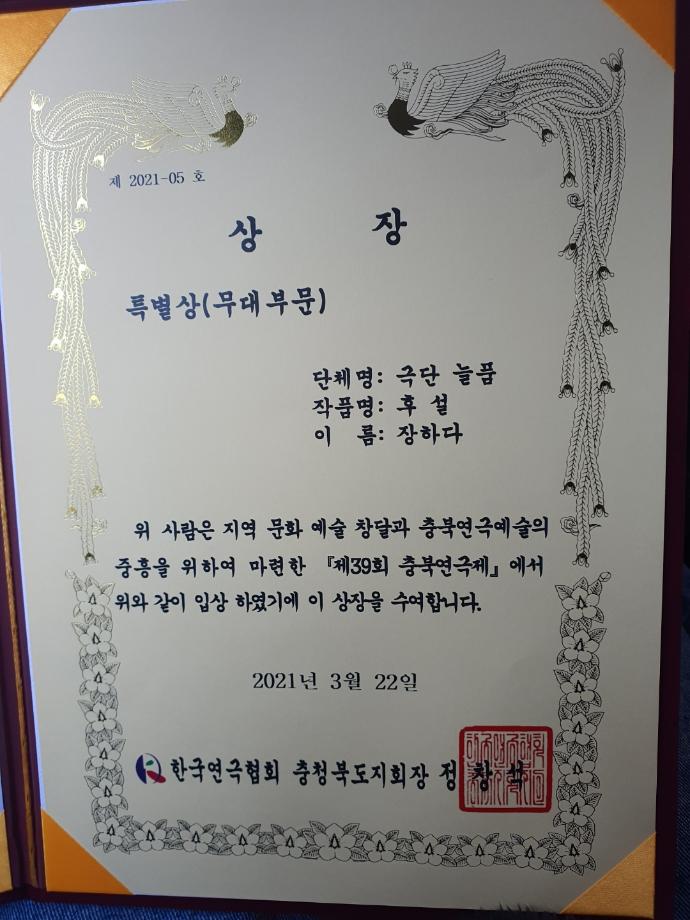 제 2021-05 호
상 장
특별상(무대부문)
단체명: 극단 늘품
작품명: 후 설
이 름: 장하다
위 사람은 지역 문화 예술 창달과 충북연극예술의
중흥을 위하여 마련한 『제39회 충북연극제』에서
위와 같이 입상 하였기에 이 상장을 수여합니다.
2021년 3월 22일
한국연극협회 충청북도지회장 정 창 석